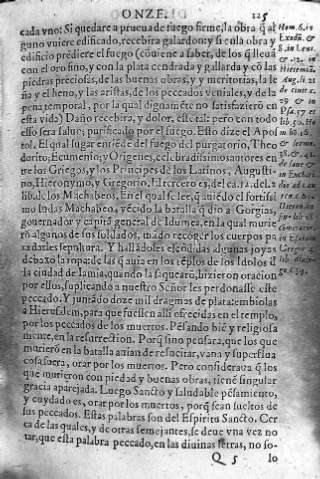 ONZE. 125
cada vno: Si quedare a prueua de fuego firme, la obra q̃ al
guno viuere edificado, recebira galardon: y si essa obra y
edificio perdiere el fuego (cõuiene a saber, de los q̃ lleuã
con el oro fino, y con la plata cendrada y gallarda y cõ las
piedras preciosas, de las buenas obras, y meritorias, la le
ña y el heno, y las aristas, de los peccados veniales, y de la
pena temporal, por la qual dignamẽte no satisfazierõ en
esta vida) Daño recebira, y dolor, esse tal: pero con todo
esso sera saluo; purificado por el fuego. Esto dize el Apos
tol. El qual lugar entiẽde del fuego del purgatorio, Theo
dorito; Ecumenio, y Origenes, celebradissimos autores en
tre los Griegos, y los Principes de los Latinos, Augusti-
no, Hieronymo, y Gregorio. El tercero es, del ca. 12. del. 2.
lib. de los Machabeos. En el qual se lee, q̃ auiẽdo el fortissi
mo Iudas Machabeo, vẽcido la batalla q̃ dio a Gorgias,
gouernador y capitã general de Idumea, en la qual murie
rõ algunos de sus soldados, mãdo recoger los cuerpos pa
ra darles sepultura. Y hallãdoles escõdidas algunas joyas
debaxo la ropa: de las q̃ auia en los tẽplos de los Idolos d̃
la ciudad de Iamia, quando la saquearõ, hizieron oracion
por ellos, suplicando a nuestro Señor les perdonasse este
peccado. Y juntãdo doze mil dragmas de plata: embiolas
a Hierusalem, para que fuessen alli ofrecidas en el templo,
por los peccados de los muertos. Pẽsando biẽ y religiosa
mente, en la resurrection. Porq̃ sino pensara, que los que
murierõ en la batalla auian de resucitar, vana y superflua
cosa fuera, orar por los muertos. Pero consideraua q̃ los
que murieron con piedad y buenas obras, tienẽ singular
gracia aparejada. Luego Sancto y saludable pẽsamiento,
y cuydado es, orar por los muertos, porq̃ sean sueltos de
sus peccados. Estas palabras son del Espiritu Sancto. Cer
ca de las quales, y de otras semejantes, se deue vna vez no
tar, que esta palabra peccado, en las diuinas letras, no so-
Q 5 lo